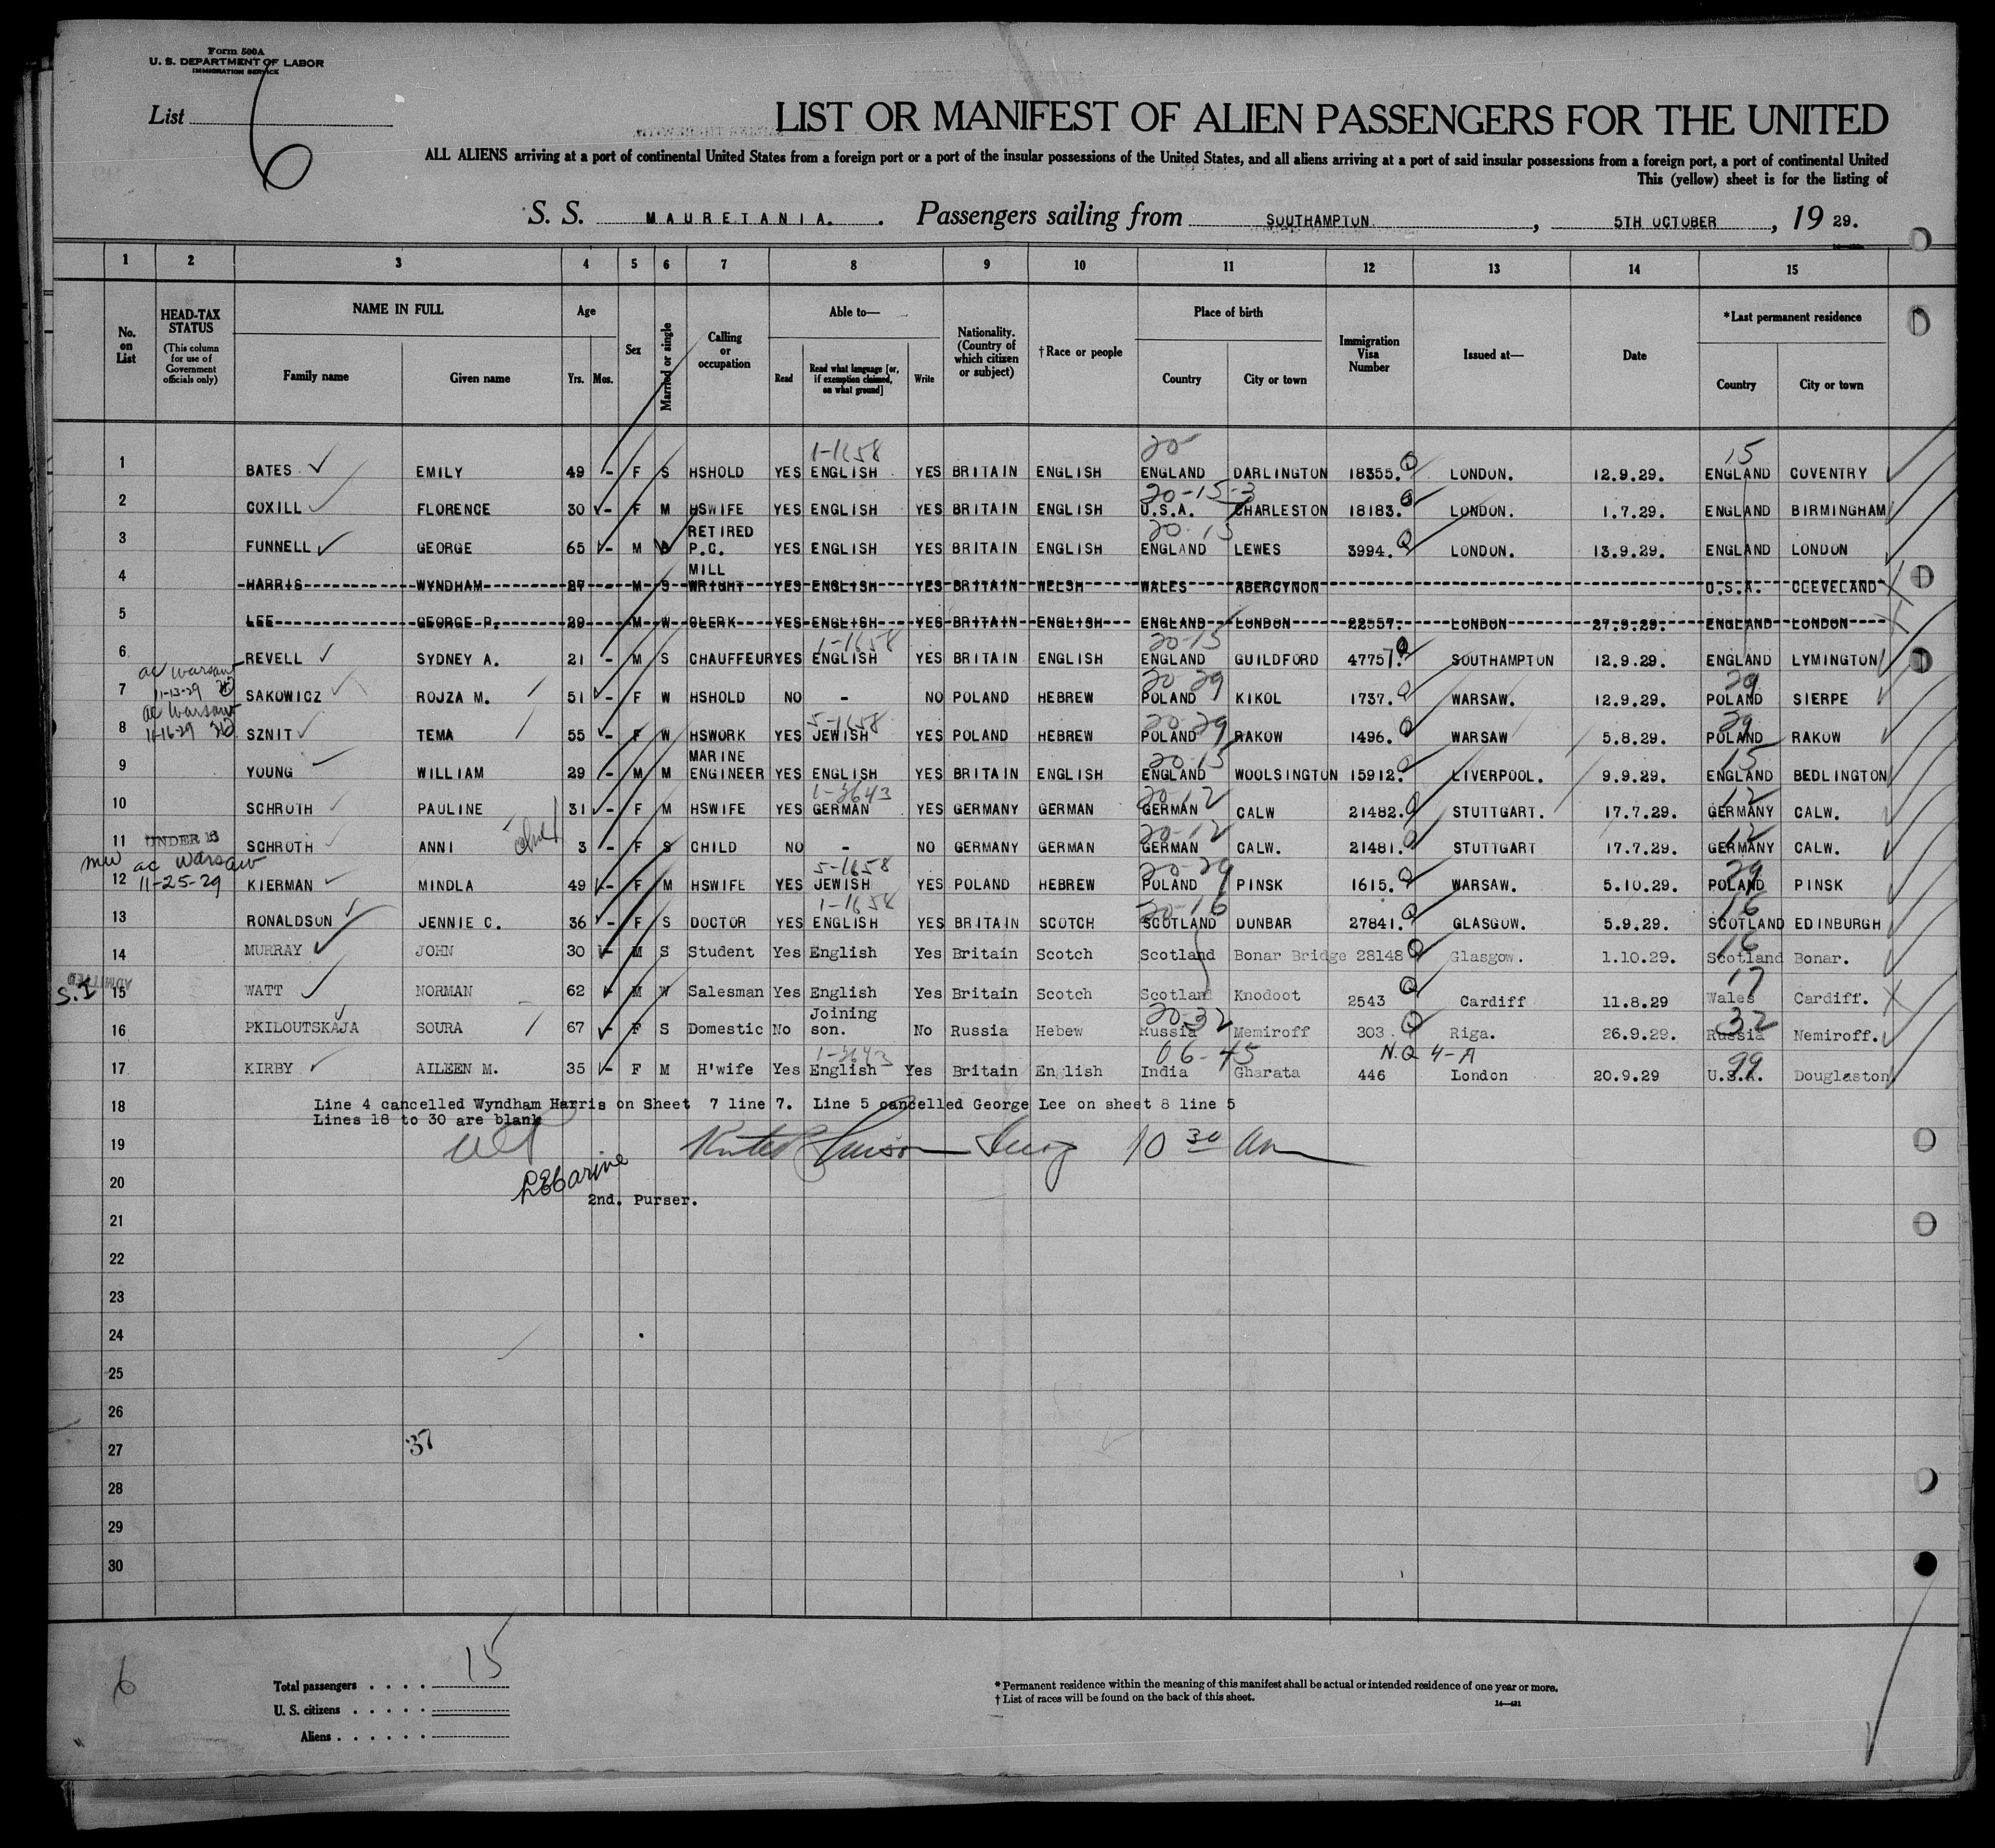 Form 500A
U. S. DEPARTMENT OF LABOR
IMMIGRATION SERVICE
List 6
LIST OR MANIFEST OF ALIEN PASSENGERS FOR THE UNITED
ALL ALIENS arriving at a port of continental United States from a foreign port or a port of the insular possessions of the United States, and all aliens arriving at a port of said insular possessions from a foreign port, a port of continental United
This (yellow) sheet is for the listing of
S. S. MAURETANIA. Passengers sailing from SOUTHAMPTON, 5TH OCTOBER, 19 29.
1 2 3 4 5 6 7 8 9 10 11 12 13 14 15
No. on List
HEAD-TAX STATUS (This column for use of Government officials only)
NAME IN FULL
Family name Given name
Age
Yrs. Mos.
Sex
Married or single
Calling or occupation
Able to—
Read Read what language [or, if exemption claimed, on what ground] Write
Nationality. (Country of which citizen or subject)
†Race or people
Place of birth
Country City or town
Immigration Visa Number
Issued at—
Date
*Last permanent residence
Country City or town
1-1658 20 15
1 BATES EMILY 49 - F S HSHOLD YES ENGLISH YES BRITAIN ENGLISH ENGLAND DARLINGTON 18355. Q LONDON. 12.9.29. ENGLAND COVENTRY
20-15-3
2 COXILL FLORENCE 30 - F M HSWIFE YES ENGLISH YES BRITAIN ENGLISH U.S.A. CHARLESTON 18183. Q LONDON. 1.7.29. ENGLAND BIRMINGHAM
20-15
3 FUNNELL GEORGE 65 - M RETIRED P.C. YES ENGLISH YES BRITAIN ENGLISH ENGLAND LEWES 3994. Q LONDON. 13.9.29. ENGLAND LONDON
4 HARRIS WYNDHAM 27 - M S MILL WRIGHT YES ENGLISH YES BRITAIN WELSH WALES ABERCYNON U.S.A. CLEVELAND
5 LEE GEORGE P. 29 - M W CLERK YES ENGLISH YES BRITAIN ENGLISH ENGLAND LONDON 22557. LONDON 27.9.29. ENGLAND LONDON
1-1658 20-15
6 REVELL SYDNEY A. 21 - M S CHAUFFEUR YES ENGLISH YES BRITAIN ENGLISH ENGLAND GUILDFORD 47757. Q SOUTHAMPTON 12.9.29. ENGLAND LYMINGTON
ac Warsaw 11-13-29 20-29 29
7 SAKOWICZ ROJZA M. 51 - F W HSHOLD NO - NO POLAND HEBREW POLAND KIKOL 1737. Q WARSAW. 12.9.29. POLAND SIERPE
ac Warsaw 11-16-29 5-1658 20-29 29
8 SZNIT TEMA 55 - F W HSWORK YES JEWISH YES POLAND HEBREW POLAND RAKOW 1496. Q WARSAW 5.8.29. POLAND RAKOW
20-15 15
9 YOUNG WILLIAM 29 - M M MARINE ENGINEER YES ENGLISH YES BRITAIN ENGLISH ENGLAND WOOLSINGTON 15912. Q LIVERPOOL. 9.9.29. ENGLAND BEDLINGTON
1-3643 20-12 12
10 SCHROTH PAULINE 31 - F M HSWIFE YES GERMAN YES GERMANY GERMAN GERMAN CALW 21482. Q STUTTGART. 17.7.29. GERMANY CALW.
20-12 12
11 UNDER 16 SCHROTH ANNI 3 - F S CHILD NO - NO GERMANY GERMAN GERMAN CALW. 21481. Q STUTTGART 17.7.29. GERMANY CALW.
mw ac Warsaw 11-25-29 5-1658 20-29 29
12 KIERMAN MINDLA 49 - F M HSWIFE YES JEWISH YES POLAND HEBREW POLAND PINSK 1615. Q WARSAW. 5.10.29. POLAND PINSK
1-1658 20-16 16
13 RONALDSON JENNIE C. 36 - F S DOCTOR YES ENGLISH YES BRITAIN SCOTCH SCOTLAND DUNBAR 27841. Q GLASGOW. 5.9.29. SCOTLAND EDINBURGH
16
14 MURRAY JOHN 30 - M S Student Yes English Yes Britain Scotch Scotland Bonar Bridge 28148 Q Glasgow. 1.10.29. Scotland Bonar.
ADMITTED 17
S.I 15 WATT NORMAN 62 - M W Salesman Yes English Yes Britain Scotch Scotland Knodoot 2543 Q Cardiff 11.8.29 Wales Cardiff.
20-32 32
16 PKILOUTSKAJA SOURA 67 - F S Domestic No Joining son. No Russia Hebew Russia Memiroff 303 Q Riga. 26.9.29. Russia Nemiroff.
1-3643 06-45 N.Q 4-A 99
17 KIRBY AILEEN M. 35 - F M H'wife Yes English Yes Britain English India Gharata 446 London 20.9.29 U.S.A. Douglaston
18 Line 4 cancelled Wyndham Harris on Sheet 7 line 7. Line 5 cancelled George Lee on sheet 8 line 5
Lines 18 to 30 are blank
19 10 30 am
20
2nd. Purser.
21
22
23
24
25
26
27 37
28
29
30
6
Total passengers . . . . 15
U. S. citizens . . . . .
Aliens . . . . . .
* Permanent residence within the meaning of this manifest shall be actual or intended residence of one year or more.
† List of races will be found on the back of this sheet.
14—421